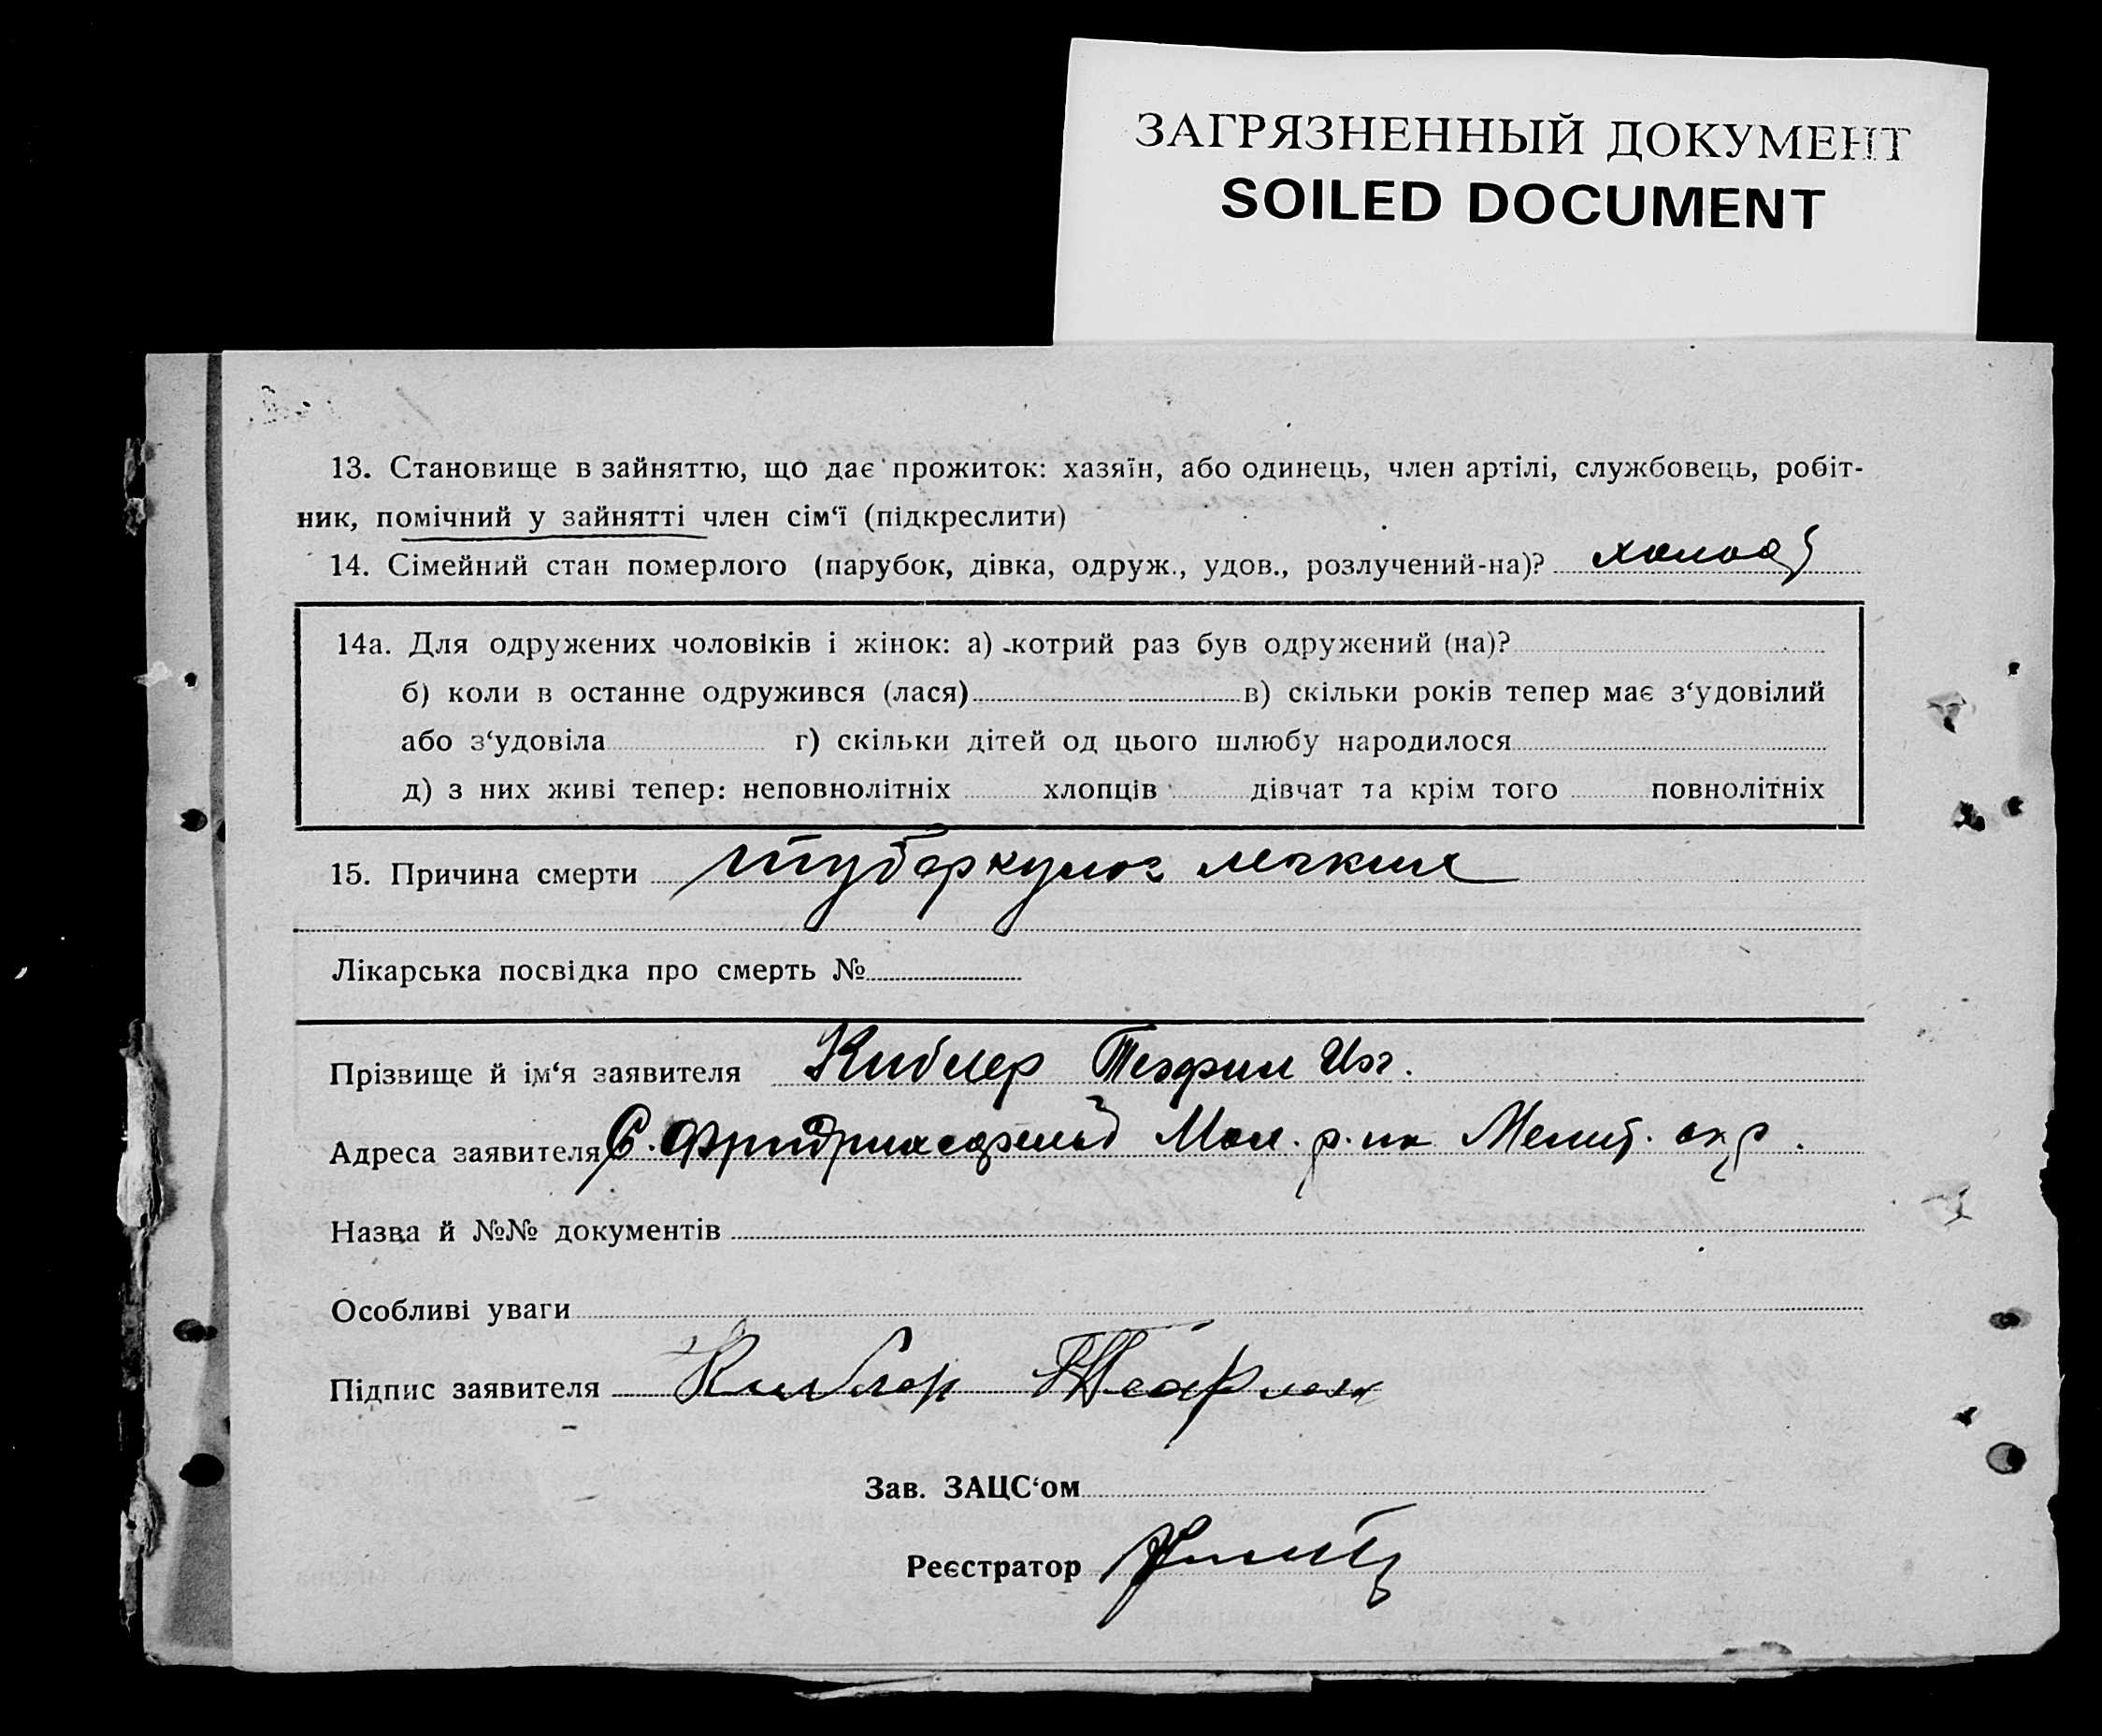 ЗАГРЯЗНЕННЫЙ ДОКУМЕНТ
SOILED DOCUMENT
13. Становище в зайняттю, що дає прожиток: хазяїн, або одинець, член артілі, службовець, робіт-
ник, помічний у зайнятті член сім‘ї (підкреслити)
14. Сімейний стан померлого (парубок, дівка, одруж., удов., розлучений-на)?
14а. Для одружених чоловіків і жінок: а) котрий раз був одружений (на)?
б) коли в останне одружився (лася) в) скільки років тепер має з‘удовілий
або з‘удовіла г) скільки дітей од цього шлюбу народилося
д) з них живі тепер: неповнолітніх хлопців дівчат та крім того повнолітніх
15. Причина смерти туберкулоз легких
Лікарська посвідка про смерть №
Прізвище й ім‘я заявителя Киблер Теофил
Адреса заявителя С. Фридрихсфельд Мол. р-на Мелит. окр.
Назва й №№ документів
Особливі уваги
Підпис заявителя Киблер
Зав. ЗАЦС‘ом
Реєстратор